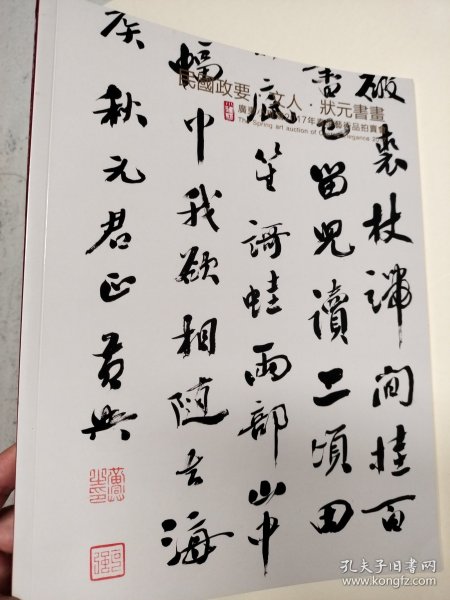 民國政要 文人·狀元書畫
廣 17年 藝術品拍賣
The Spring art auction of
破裘杖端间挂百
書已留兒讀二頃田
底笙謌蛙兩部山中
幅巾我欲相隨去海
秋元君正黃興
孔夫子旧书网
www.kongfz.com